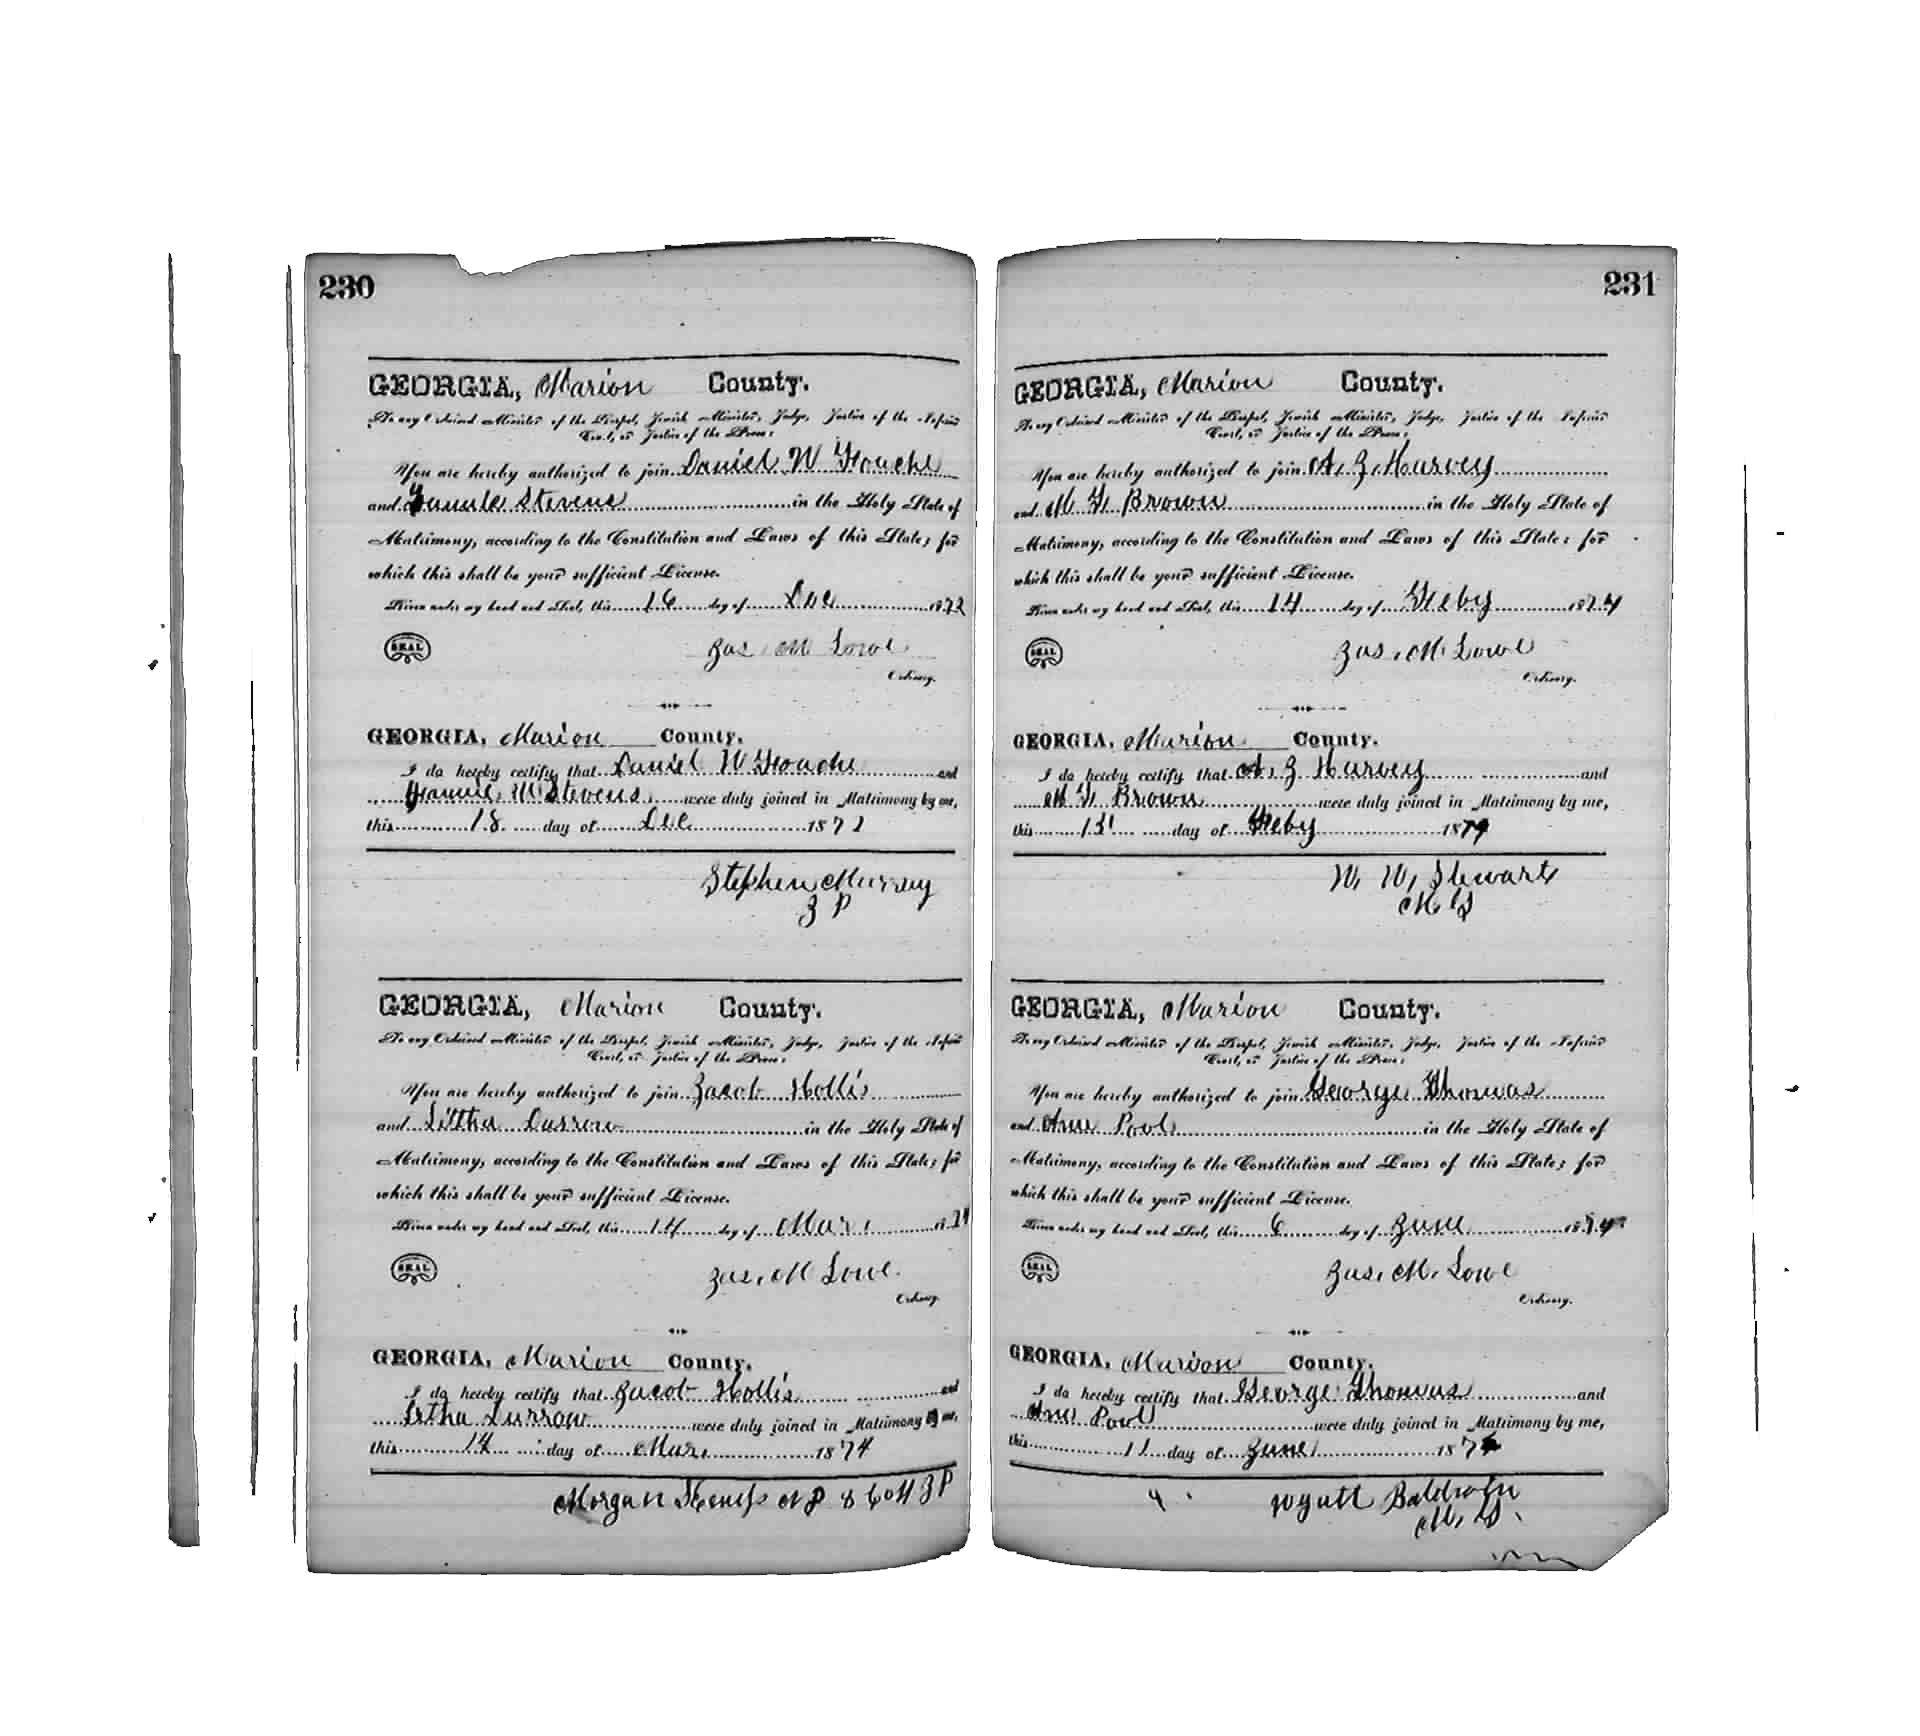 230
GEORGIA, Marion County.
To any Ordained Minister of the Gospel, Jewish Minister, Judge, Justice of the Inferior
Court, or Justice of the Peace:
You are hereby authorized to join Daniel W
and Stevens in the Holy State of
Matrimony, according to the Constitution and Laws of this State; for
which this shall be your sufficient License.
Given under my hand and Seal, this 16 day of Dec 1872
SEAL Jas. M Lowe
Ordinary.
GEORGIA, Marion County.
I do hereby certify that Daniel W and
M Stevens were duly joined in Matrimony by me,
this 18 day of Dec 187
Stephen Murray
J P
GEORGIA, Marion County.
To any Ordained Minister of the Gospel, Jewish Minister, Judge, Justice of the Inferior
Court, or Justice of the Peace:
You are hereby authorized to join Jacob Hollis
and in the Holy State of
Matrimony, according to the Constitution and Laws of this State; for
which this shall be your sufficient License.
Given under my hand and Seal, this 14 day of Mar. 187
SEAL Jas. M Lowe
Ordinary.
GEORGIA, Marion County.
I do hereby certify that Jacob Hollis and
were duly joined in Matrimony by me,
this 14 day of Mar. 1874
Morgan Kemp N P & J P
231
GEORGIA, Marion County.
To any Ordained Minister of the Gospel, Jewish Minister, Judge, Justice of the Inferior
Court, or Justice of the Peace:
You are hereby authorized to join A. J. Harvey
and M F Brown in the Holy State of
Matrimony, according to the Constitution and Laws of this State; for
which this shall be your sufficient License.
Given under my hand and Seal, this 14 day of Feby 1874
SEAL Jas. M Lowe
Ordinary.
GEORGIA, Marion County.
I do hereby certify that A. J Harvey and
M F Brown were duly joined in Matrimony by me,
this 15 day of Feby 1874
W. W. Stewart
M G
GEORGIA, Marion County.
To any Ordained Minister of the Gospel, Jewish Minister, Judge, Justice of the Inferior
Court, or Justice of the Peace:
You are hereby authorized to join George Thomas
and Ann Pool in the Holy State of
Matrimony, according to the Constitution and Laws of this State; for
which this shall be your sufficient License.
Given under my hand and Seal, this 6 day of June 1874
SEAL Jas. M. Lowe
Ordinary.
GEORGIA, Marion County.
I do hereby certify that George Thomas and
Ann Pool were duly joined in Matrimony by me,
this 11 day of June 187
Wyatt Baldwin
M. G.